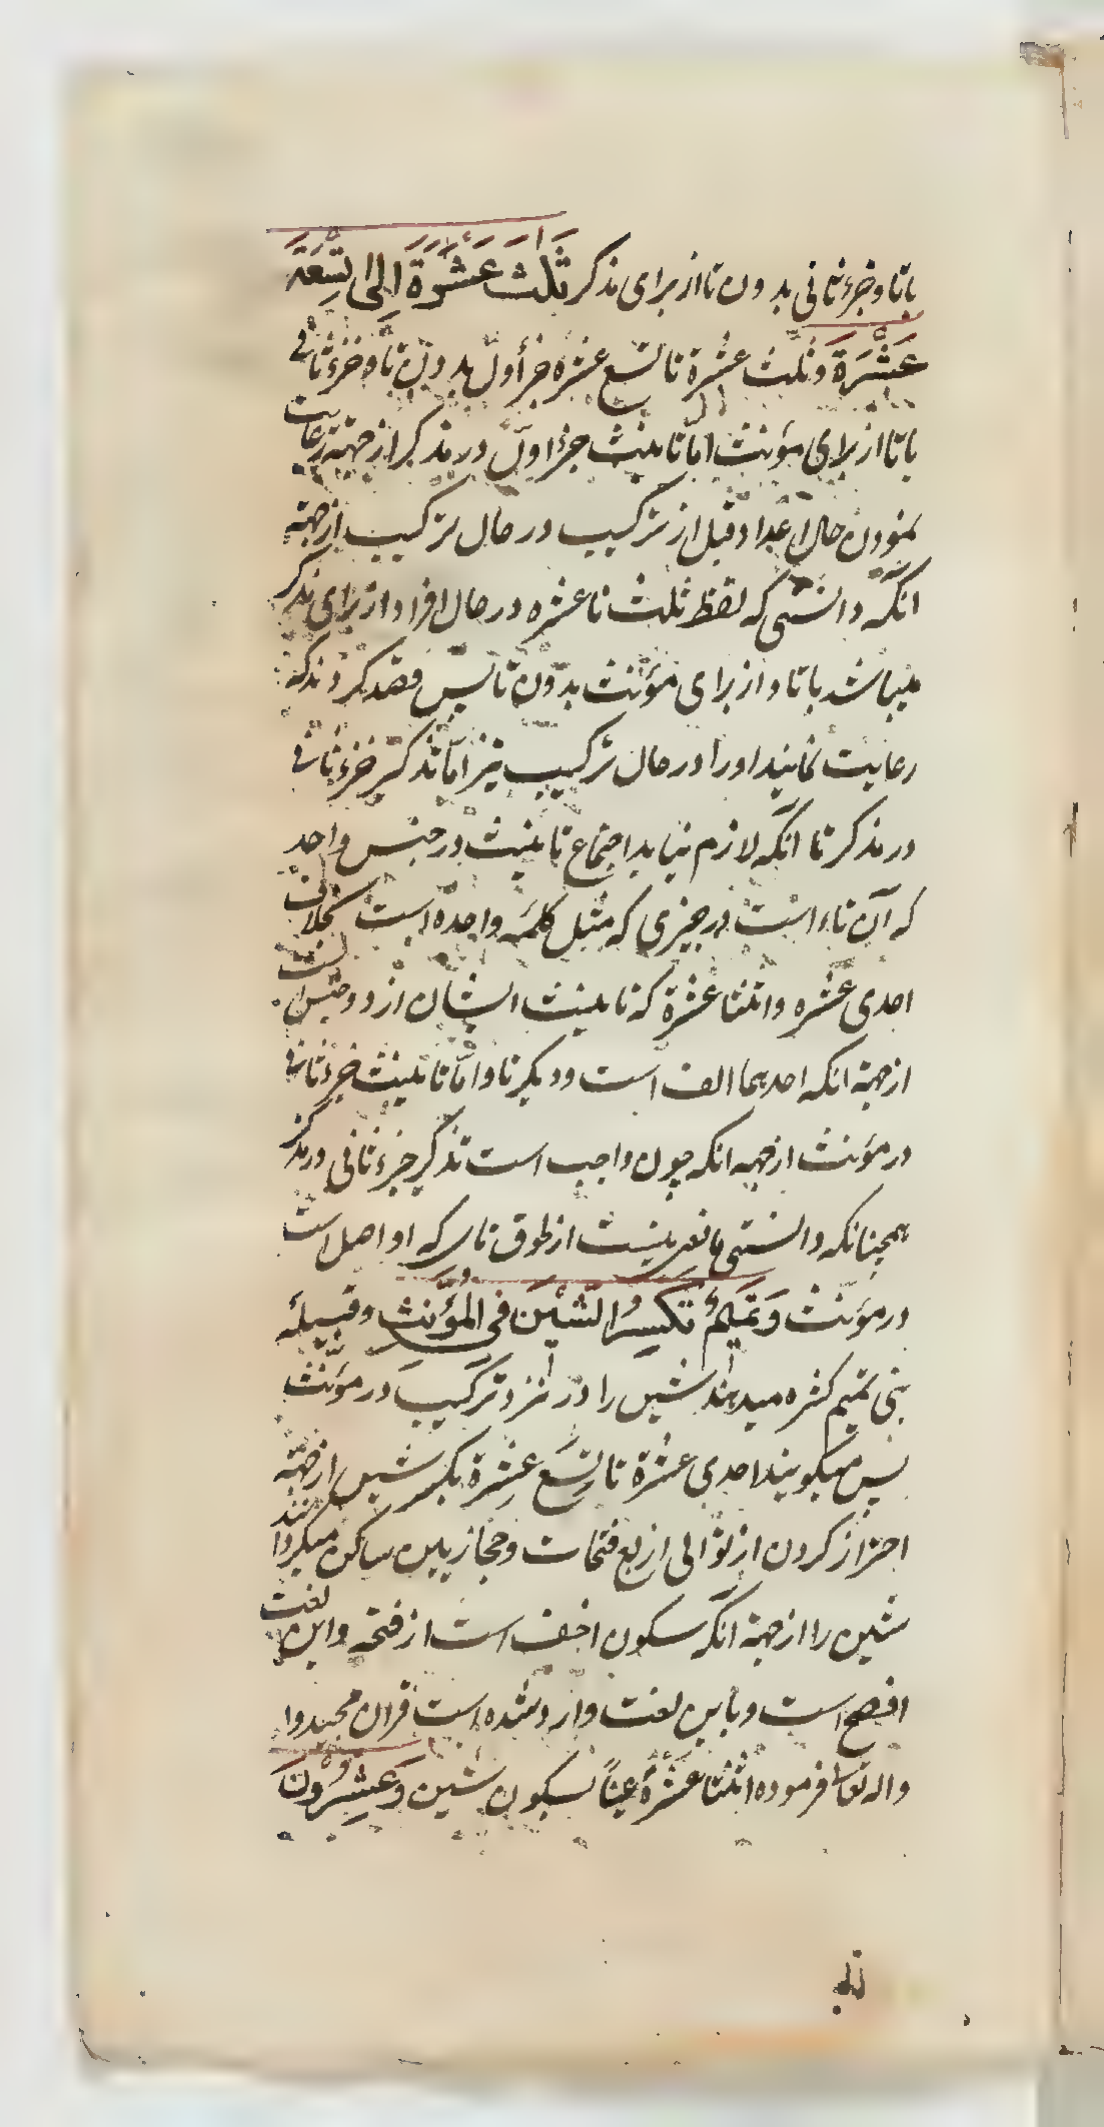 باتا و جزء ثانی بدون تا از برای مذکر ثَلٰثَ عَشَرَةَ اِلٰی تِسْعَةَ
عَشْرَةَ و ثلث عشرة تا تسع عشره جزء اول بدون تا و جزء ثانی
باتا از برای مؤنث اما تانیث جزء اول در مذکر از جهة رعایت
نمودن حال اعداد قبل از ترکیب در حال ترکیب از جهة
انکه دانستی که لفظ ثلث تا عشره در حال افراد از برای مذکر
میباشد باتا و از برای مؤنث بدون تا پس قصد کردند که
رعایت نمایند او را در حال ترکیب نیز اما تذکیر جزء ثانی
در مذکر تا انکه لازم نیاید اجتماع تانیث در جنس واحد
که آن تاء است در چیزی که مثل کلمه واحده است بخلاف
احدی عشره و اثنتا عشرة که تانیث ایشان از دو جنس است
از جهة انکه احدهما الف است و دیکر تا و اما تانیث جزء ثانی
در مؤنث از جهه انکه چون واجب است تذکیر جزء ثانی در مذکر
همچنانکه دانستی مانعی نیست از طوق تاء که او اصل است
در مؤنث وَتَمِیْمُ تُکْسِرُ الشّیْنَ فِی المُؤَنّثِ و قبیله
بنی تمیم کسره میدهند شین را در نزد ترکیب در مؤنث
پس میکویند احدی عشرة تا تسع عشرة بکسر شین از جهة
احتراز کردن از توالی اربع فتحات و حجازیین ساکن میکردانند
شین را از جهة انکه سکون اخف است از فتحه و این لغت
افصح است و باین لغت وارد شده است قران مجید و
واله تعا فرموده اثنتا عشرة عیناً بسکون شین وَعِشْرُوْنَ